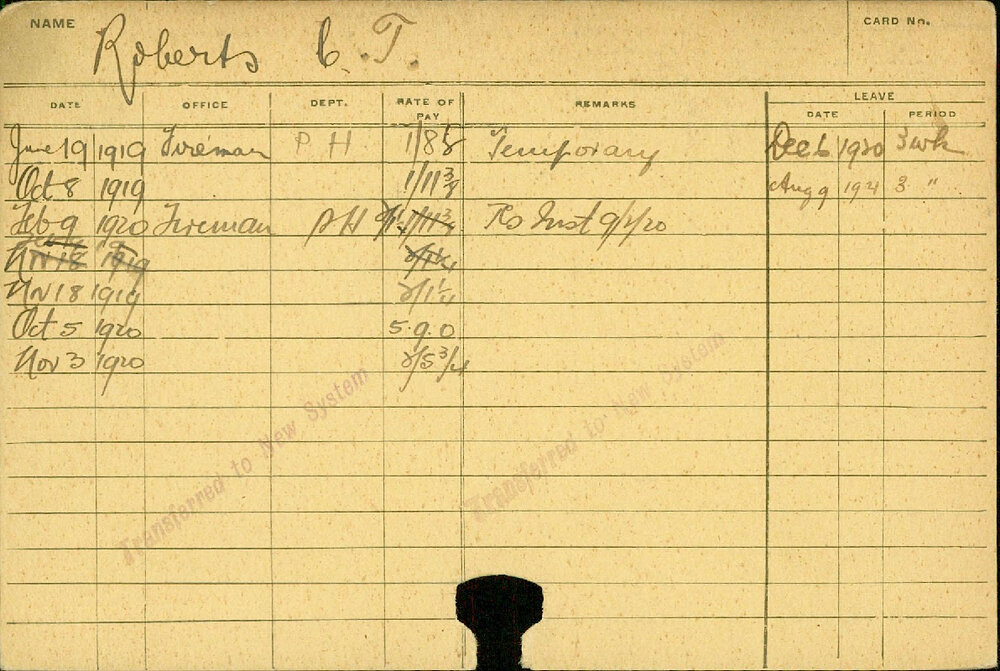 NAME Roberts C. T. CARD No.
DATE OFFICE DEPT. RATE OF PAY REMARKS LEAVE
DATE PERIOD
June 19 1919 Fireman P H 1/8 Temporary Dec 6 1920 3 wk
Oct 8 1919 1/11 3/8 Aug 9 1921 3 "
Feb 9 1920 Fireman P H Ro Inst 9/2/20
Nov 18 1919 2/1 1/4
Nov 18 1919 2/1 1/4
Oct 5 1920 5.9.0
Nov 3 1920 2/5 3/4
Transferred to New System
Transferred to New System